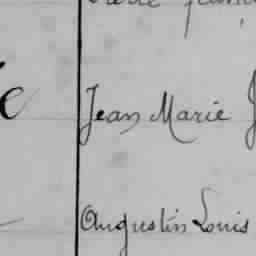 Jean Marie J
Augustin Louis